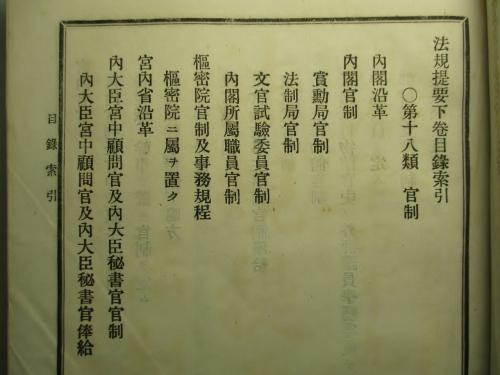 法規提要下卷目錄索引
〇第十八類 官制
內閣沿革
內閣官制
賞勳局官制
法制局官制
文官試驗委員官制
內閣所屬職員官制
樞密院官制及事務規程
樞密院ニ屬ヲ置ク
宮內省沿革
內大臣宮中顧問官及內大臣秘書官官制
內大臣宮中顧問官及內大臣秘書官俸給
目錄索引